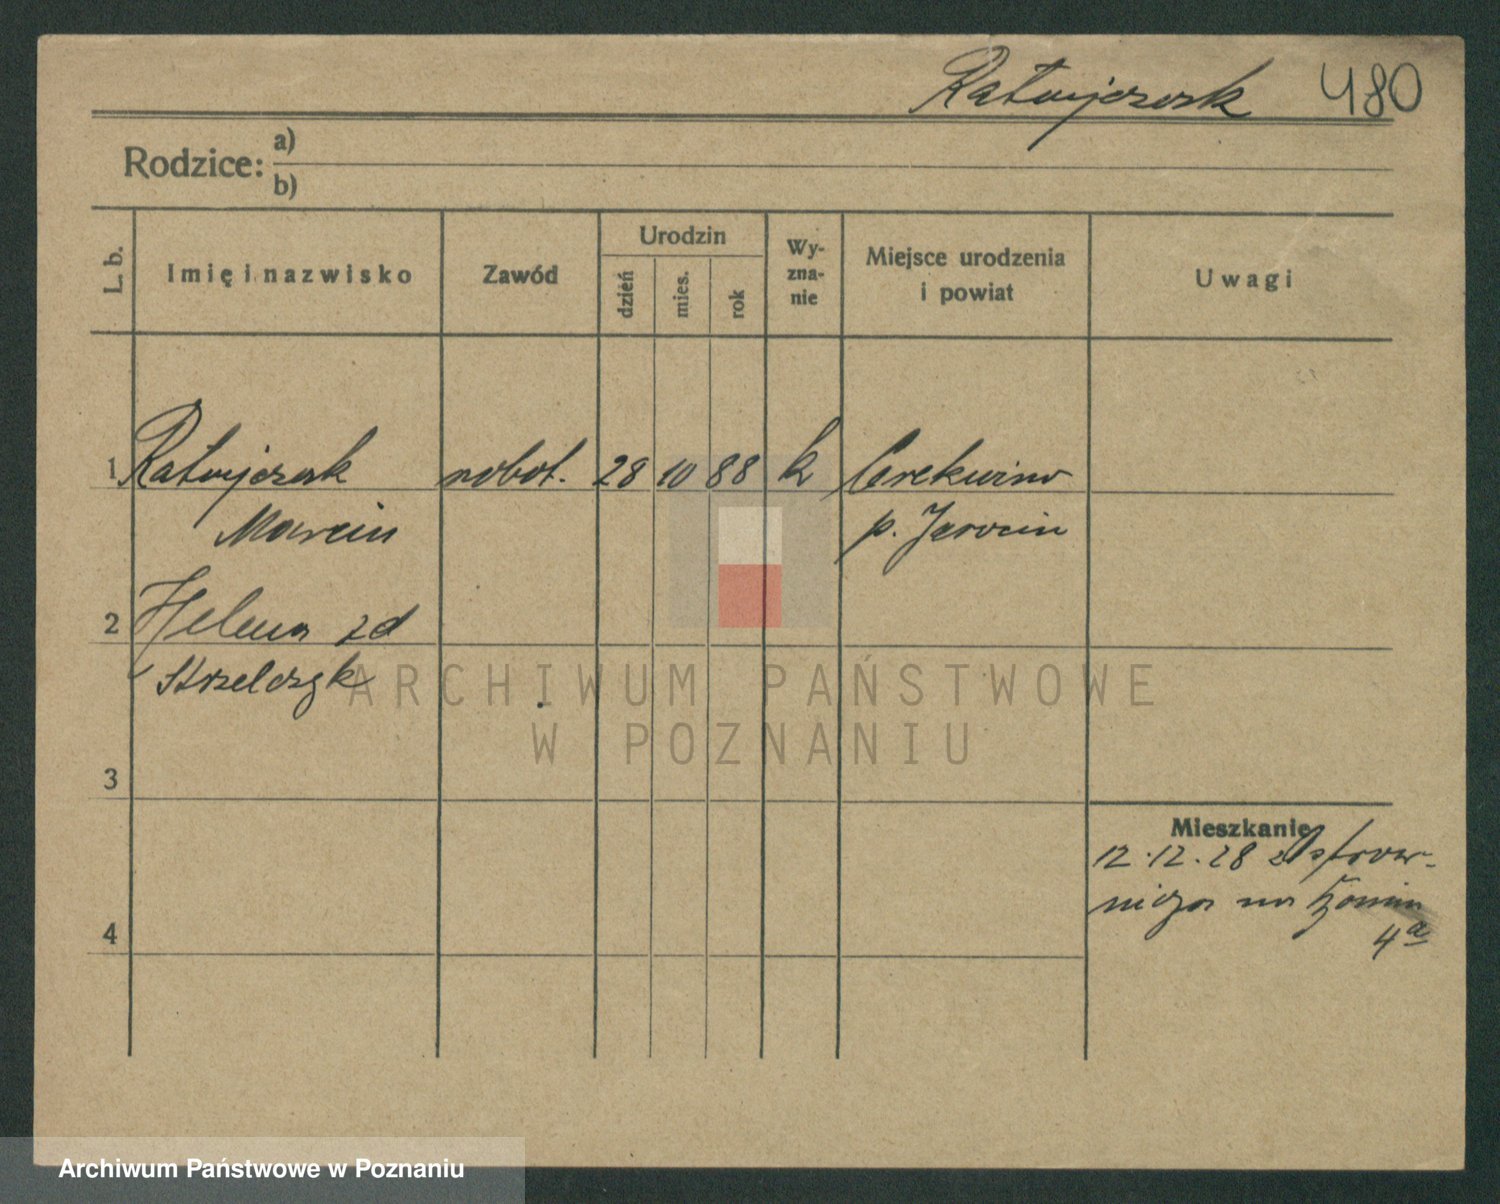 Ratajczak 480
Rodzice: a)
b)
L. b.
Imię i nazwisko
Zawód
Urodzin
dzień
mies.
rok
Wy-
zna-
nie
Miejsce urodzenia
i powiat
Uwagi
1 Ratajczak robot. 28 10 88 k Cerekwica
Marcin p. Jarocin
2 Helena zd
Strzelczyk
3
Mieszkanie
12.12.28 z
na
4
4a
ARCHIWUM PAŃSTWOWE
W POZNANIU
Archiwum Państwowe w Poznaniu